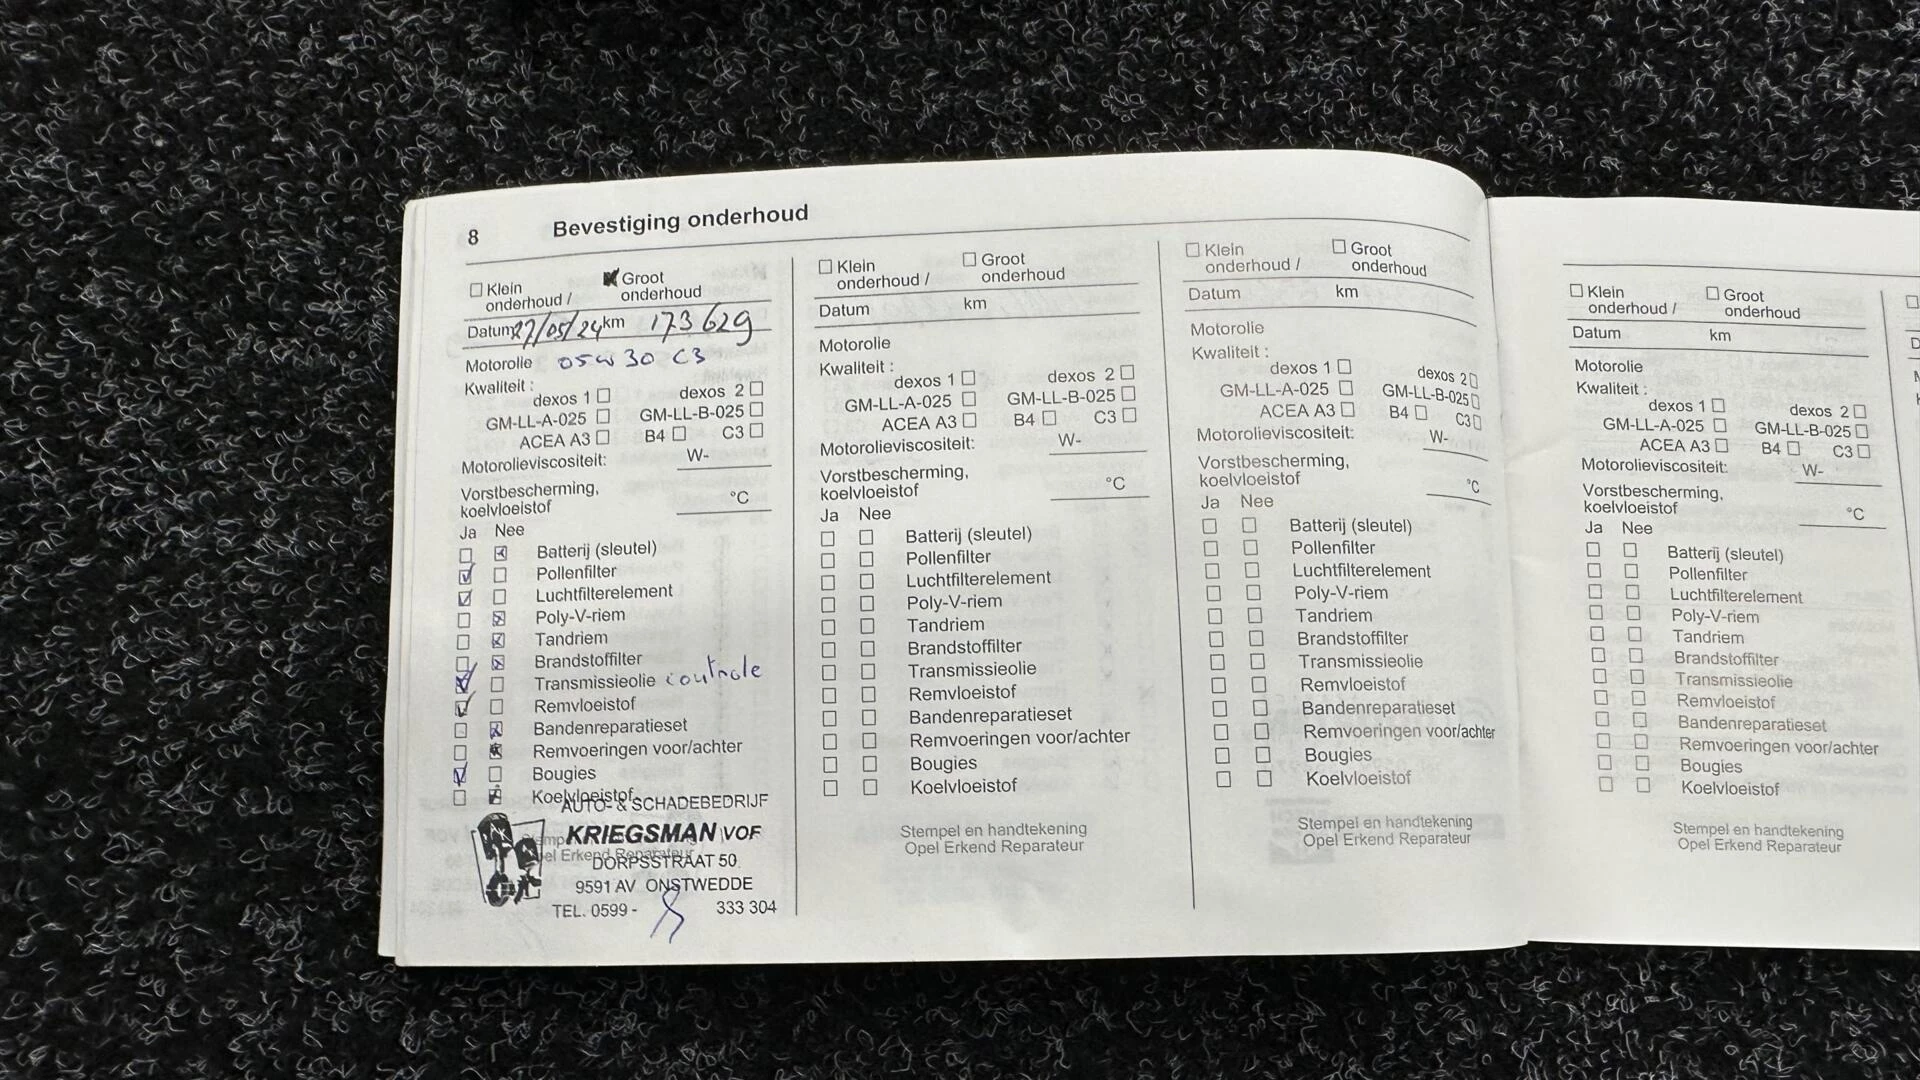 8 Bevestiging onderhoud
Klein onderhoud /
Groot onderhoud
Datum 27/05/24 km 173629
Motorolie 05w30 C3
Kwaliteit :
dexos 1 dexos 2
GM-LL-A-025 GM-LL-B-025
ACEA A3 B4 C3
Motorolieviscositeit: W-
Vorstbescherming,
koelvloeistof °C
Ja Nee
Batterij (sleutel)
Pollenfilter
Luchtfilterelement
Poly-V-riem
Tandriem
Brandstoffilter
Transmissieolie controle
Remvloeistof
Bandenreparatieset
Remvoeringen voor/achter
Bougies
Koelvloeistof
AUTO- & SCHADEBEDRIJF
KRIEGSMAN VOF
Opel Erkend Reparateur
DORPSSTRAAT 50
9591 AV ONSTWEDDE
TEL. 0599 - 333 304
Klein onderhoud /
Groot onderhoud
Datum km
Motorolie
Kwaliteit :
dexos 1 dexos 2
GM-LL-A-025 GM-LL-B-025
ACEA A3 B4 C3
Motorolieviscositeit: W-
Vorstbescherming,
koelvloeistof °C
Ja Nee
Batterij (sleutel)
Pollenfilter
Luchtfilterelement
Poly-V-riem
Tandriem
Brandstoffilter
Transmissieolie
Remvloeistof
Bandenreparatieset
Remvoeringen voor/achter
Bougies
Koelvloeistof
Stempel en handtekening
Opel Erkend Reparateur
Klein onderhoud /
Groot onderhoud
Datum km
Motorolie
Kwaliteit :
dexos 1 dexos 2
GM-LL-A-025 GM-LL-B-025
ACEA A3 B4 C3
Motorolieviscositeit: W-
Vorstbescherming,
koelvloeistof °C
Ja Nee
Batterij (sleutel)
Pollenfilter
Luchtfilterelement
Poly-V-riem
Tandriem
Brandstoffilter
Transmissieolie
Remvloeistof
Bandenreparatieset
Remvoeringen voor/achter
Bougies
Koelvloeistof
Stempel en handtekening
Opel Erkend Reparateur
Klein onderhoud /
Groot onderhoud
Datum km
Motorolie
Kwaliteit :
dexos 1 dexos 2
GM-LL-A-025 GM-LL-B-025
ACEA A3 B4 C3
Motorolieviscositeit: W-
Vorstbescherming,
koelvloeistof °C
Ja Nee
Batterij (sleutel)
Pollenfilter
Luchtfilterelement
Poly-V-riem
Tandriem
Brandstoffilter
Transmissieolie
Remvloeistof
Bandenreparatieset
Remvoeringen voor/achter
Bougies
Koelvloeistof
Stempel en handtekening
Opel Erkend Reparateur